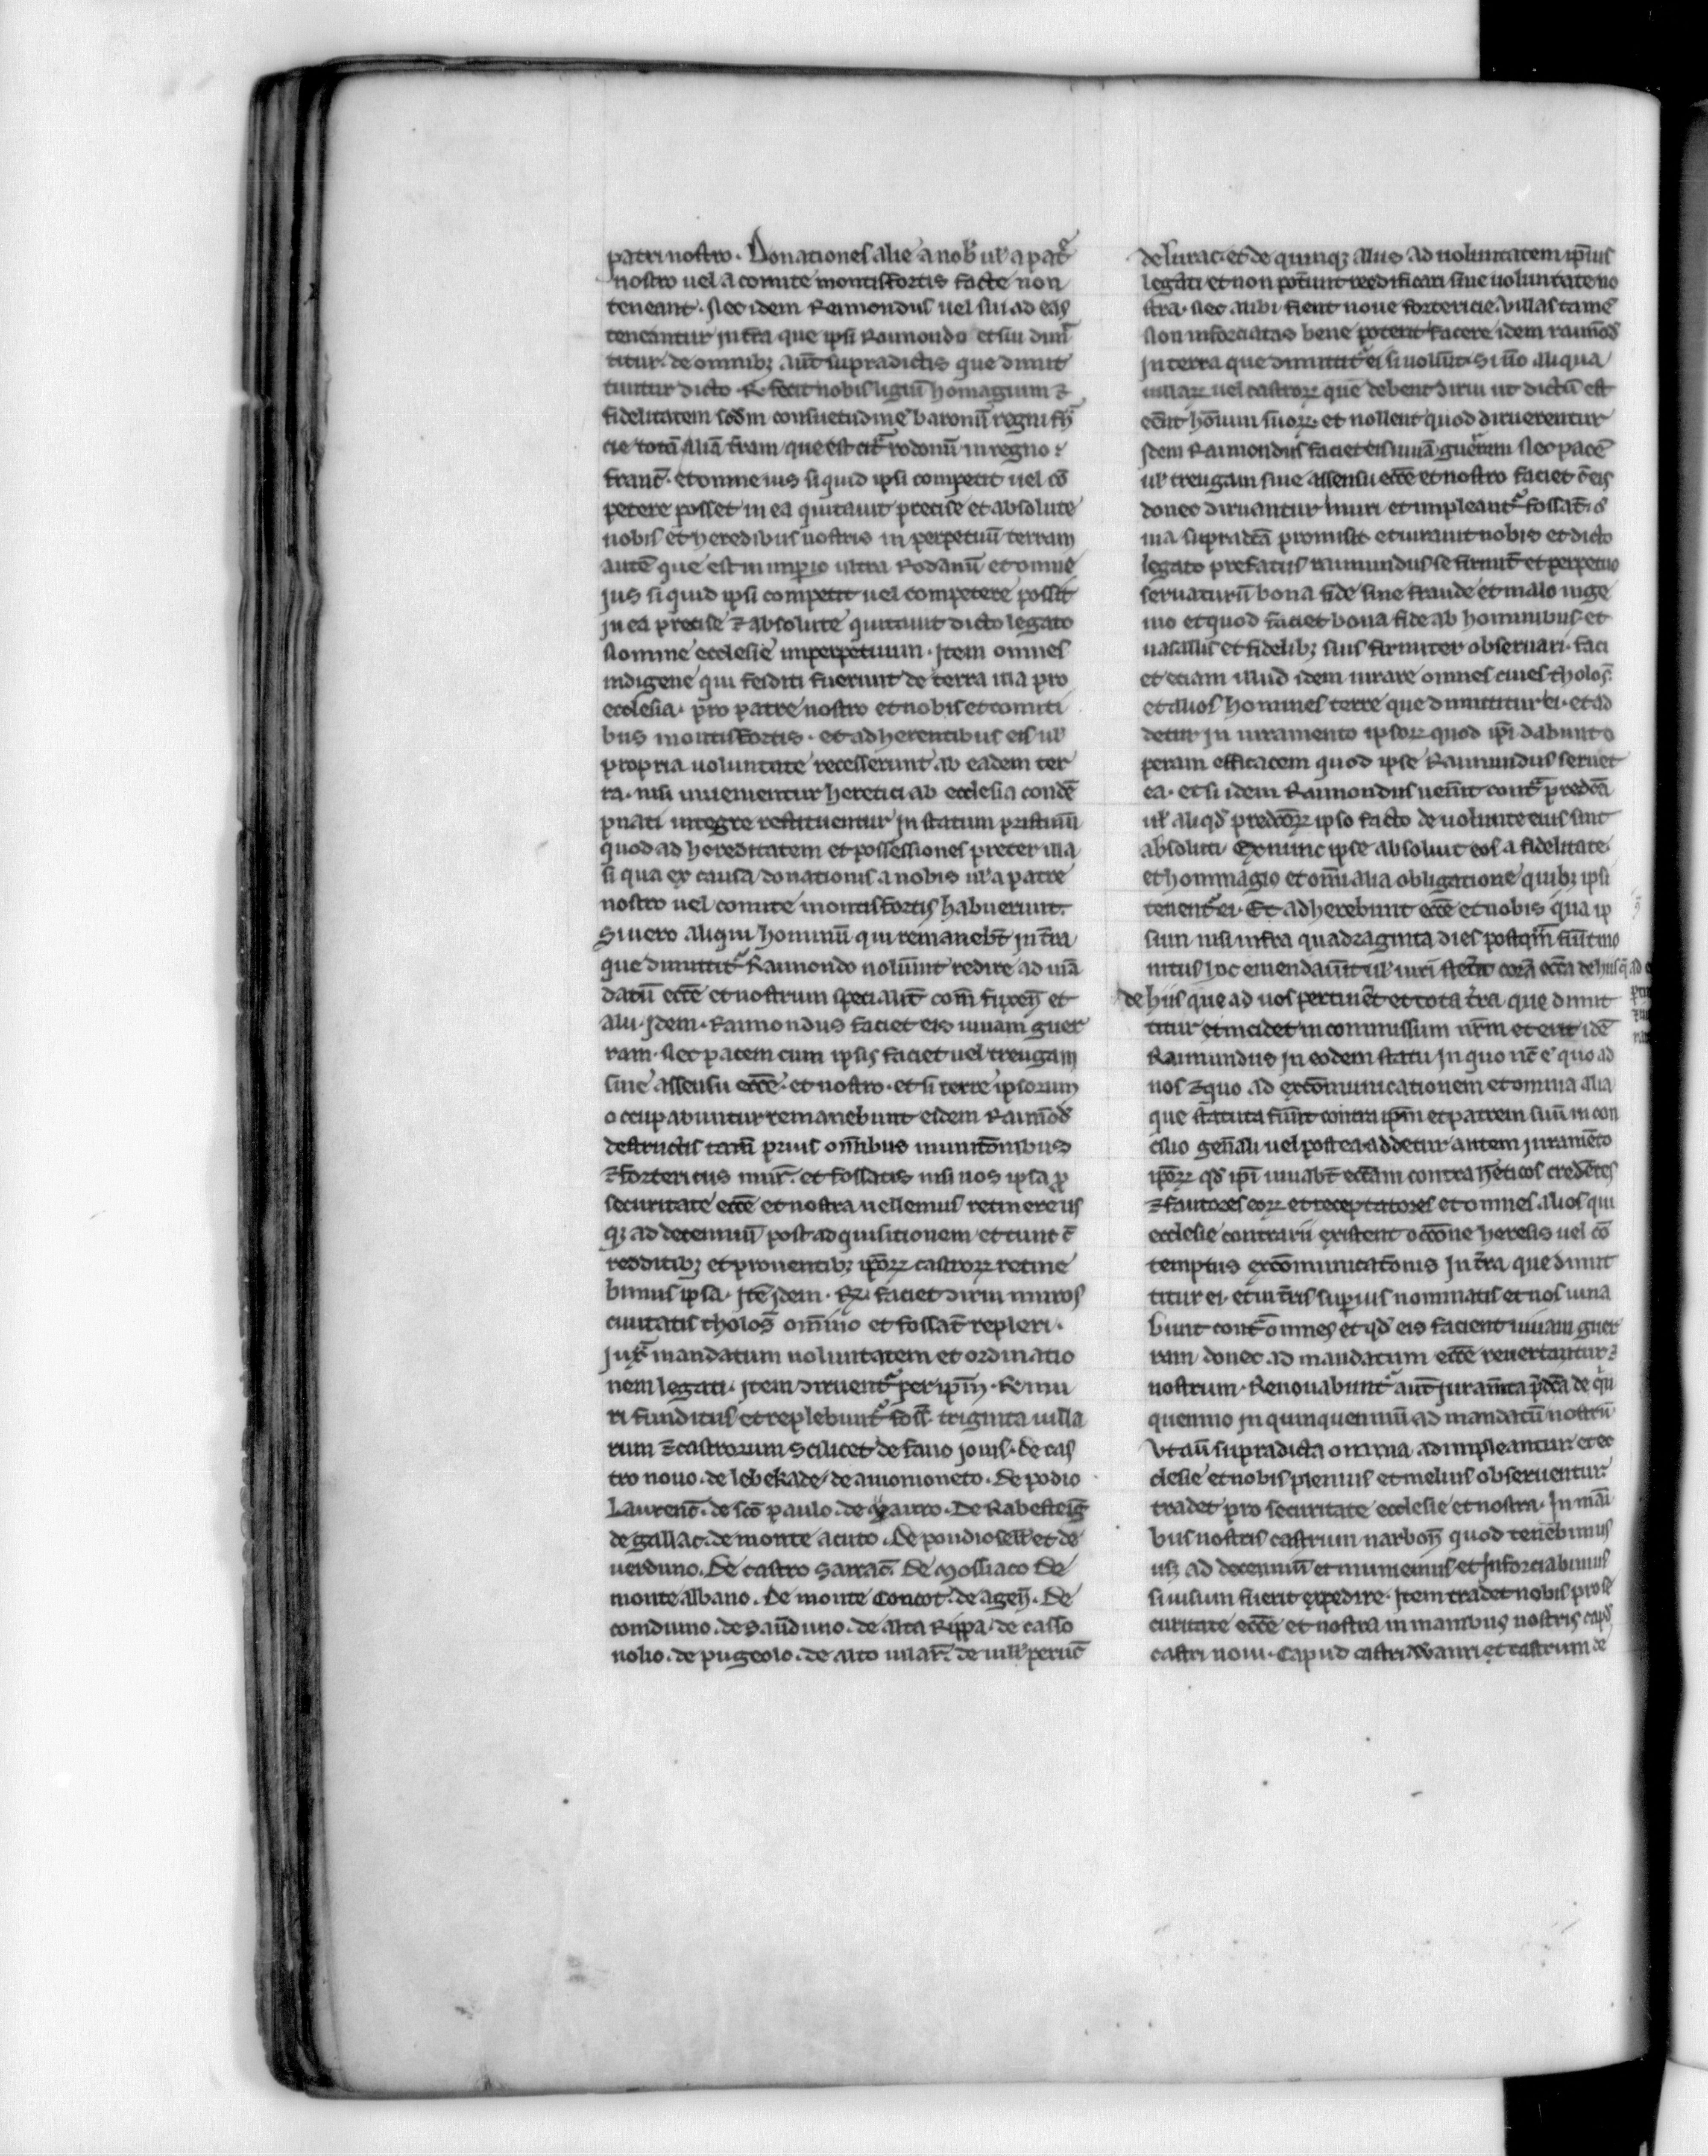 patri nostro. Donationes alie a nob̄ ul̄ a pat̄e
nostro uel a comite montisfortis facte non
teneant. Nec idem Raimondus uel sui ad eas
teneantur in t̄ra que ipsi Raimondo et sui dim̄
titur. de omnibꝫ aut̄ supradictis que dimit
tuntur dicto .R. fecit nobis ligiū homagium ⁊
fidelitatem scd̄m consuetudinē baronū regni fn̄
cie totā aliā t̄ram que est cit̄ rodonū in regno
franc̄. et omne ius si quid ipsi competit uel cō
petere posset in ea quitauit precise et absolute
nobis et heredibus nostris in perpetuū terram
autē que est in imꝑio ultra Rodanū et omne
jus si quid ipsi competit uel competere possit
in ea precise ⁊ absolute quitauit dicto legato
nomine ecclesie inperpetuum. Item omnes
indigene qui feiditi fuerunt de terra illa pro
ecclesia. pro patre nostro et nobis et comiti
bus montisfortis. et adherentibus eis ul̄
propria uoluntate recesserunt ab eadem ter
ra. nisi inuementur heretici ab ecclesia condē
pnati integre restituentur in statum pristinū
quod ad hereditatem et possessiones preter illa
si qua ex causa donationis a nobis ul̄ a patre
nostro uel comite montisfortis habuerunt.
Si uero aliqui hominū qui remanebt̄ in t̄ra
que dimittit᷑ Raimondo nolūnt redire ad mā
datū ecc̄e et nostrum specialit̄ com̄ fuxen̄ et
alii. Idem. Raimondus faciet eis uiuam guer
ram. Nec pacem cum ipsis faciet uel treugam
sine assensu ecc̄e. et nostro. et si terre ipsorum
occupabuntur remanebunt eidem Raimōd̄
destructis tam̄ prius om̄ibus munitōnibus
⁊ forteritiis mur̄. et fossatis nisi nos ipsa ꝓ
securitate ecc̄e et nostra uellemus retinere us
qꝫ ad decenniū post adquisitionem et tunt c̄
redditibꝫ et prouentibꝫ ip̄oꝝ castroꝝ retine
bimus ipsa. Itē idem .Rꝫ. faciet dirui muros
ciuitatis tholos̄ om̄ino et fossat̄ repleri.
jux̄ mandatum uoluntatem et ordinatio
nem legati. item diruent᷑ per ip̄m .R. mu
ri funditus et replebunt᷑ foss̄. triginta uilla
rum ⁊ castrorum Scilicet de fano jouis. de cas
tro nouo. de lebekade. de auionioneto. de podio
Laurenc̄. de sc̄o paulo. de yauro. De Rabesteig̅
de gallac. de monte acuto. De poudioseł et de
uerduno. De castro Sarrac̄. De Mossiaco De
monte albano. De monte Concot. de agen̄. De
comduno. de Sau̅duno. de alta Rippa. de casso
nolio. de pugeolo. de alto uilar̄. de uill̄ peruc̄
de lurac. et de quinqꝫ aliis ad uoluntatem ip̄ius
legati et non pot̄unt reedificari sine uoluntate no
stra. Nec alibi fient noue fortericie. Villas tamē
Non inforciatas bene poterit facere idem raimōd̄
in terra que dimittit᷑ ei si uolūit. Si ū̄o aliqua
uillaꝝ uel castroꝝ que debent dirui ut dictū est
eēnt hōium suoꝝ. et nollent quod diruerentur
idem Raimondus faciet eis uiuā guerram Nec pacē
ul̄ treugam sine assensu ecc̄e et nostro faciet c̄ eis
donec diruantur muri et impleant᷑ fossat̄. om̄
nia supradc̄a promisit et iurauit nobis et dicto
legato prefatus raimundus se firmit̄ et perpetuo
seruaturū bona fide sine fraude et malo inge
nio et quod faciet bona fide ab hominibus et
uasallis et fidelibꝫ suis firmiter obseruari. faci
et etiam illud idem iurare omnes ciues tholos̄.
et alios homines terre que dimittitur ei. et ad
detur in iuramento ipsoꝝ quod ip̄i dabunt o
peram efficacem quod ipse Raimundus seruet
ea. et si idem Raimondus uen̄it cont̄ predc̄a
ul̄ aliqd̄ predc̄oꝝ ipso facto de uolunte eius sint
absoluti. Ex nunc ipse absoluit eos a fidelitate
et hommagio et om̄i alia obligatione quibꝫ ipsi
tenent᷑ ei. Et adherebunt ecc̄e et nobis qua ip
sum nisi infra quadraginta dies postqm̄ fūit mo
nitus hoc emendauīt ul̄ iuri stetīt corā ecc̄a de hiis q̄ ad
de hiis que ad uos pertinēt et tota t̄ra que dimit
titur et incidet in commissum nr̄m et erit idē
Raimundus in eodem statu in quo nc̄ ē quo ad
nos ⁊ quo ad excōmunicationem et omnia alia
que statuta fūnt contra ip̄m et patrem suū in con
cilio gen̄ali uel postea. addetur autem juramēto
ip̄oꝝ qd̄ ip̄i iuuabt̄ ecc̄am contra h̄eticos credētes
⁊ fautores eoꝝ et receptatores et omnes alios qui
ecclesie contrarii existent occōne heresis uel cō
temptus excōmunicatōnis In t̄ra que dimit
titur ei. et in t̄ris suꝑius nominatis et nos iuua
bunt cont̄ omnes et qd̄ eis facient uiuam guer
ram donec ad mandatum ecc̄e reuertantur ⁊
nostrum. Renouabunt᷑ aut̄ juram̄ta p̄dc̄a de qⁱn
quennio in quinquenniū ad mandatū nostrū
Vt aū supradicta omnia adimpleantur et ec
clesie et nobis plenius et melius obseruentur.
tradet pro securitate ecclesie et nostra. In mani
bus nostris castrum narbon̄ quod tenēbimus
usqꝫ ad decenniū et muniemus et Inforciabimus
si uisum fuerit expedire. Item tradet nobis pro se
curitate ecc̄e et nostra in manibus nostris capd̄
castri noui. Capud castri Wauri et castrum de